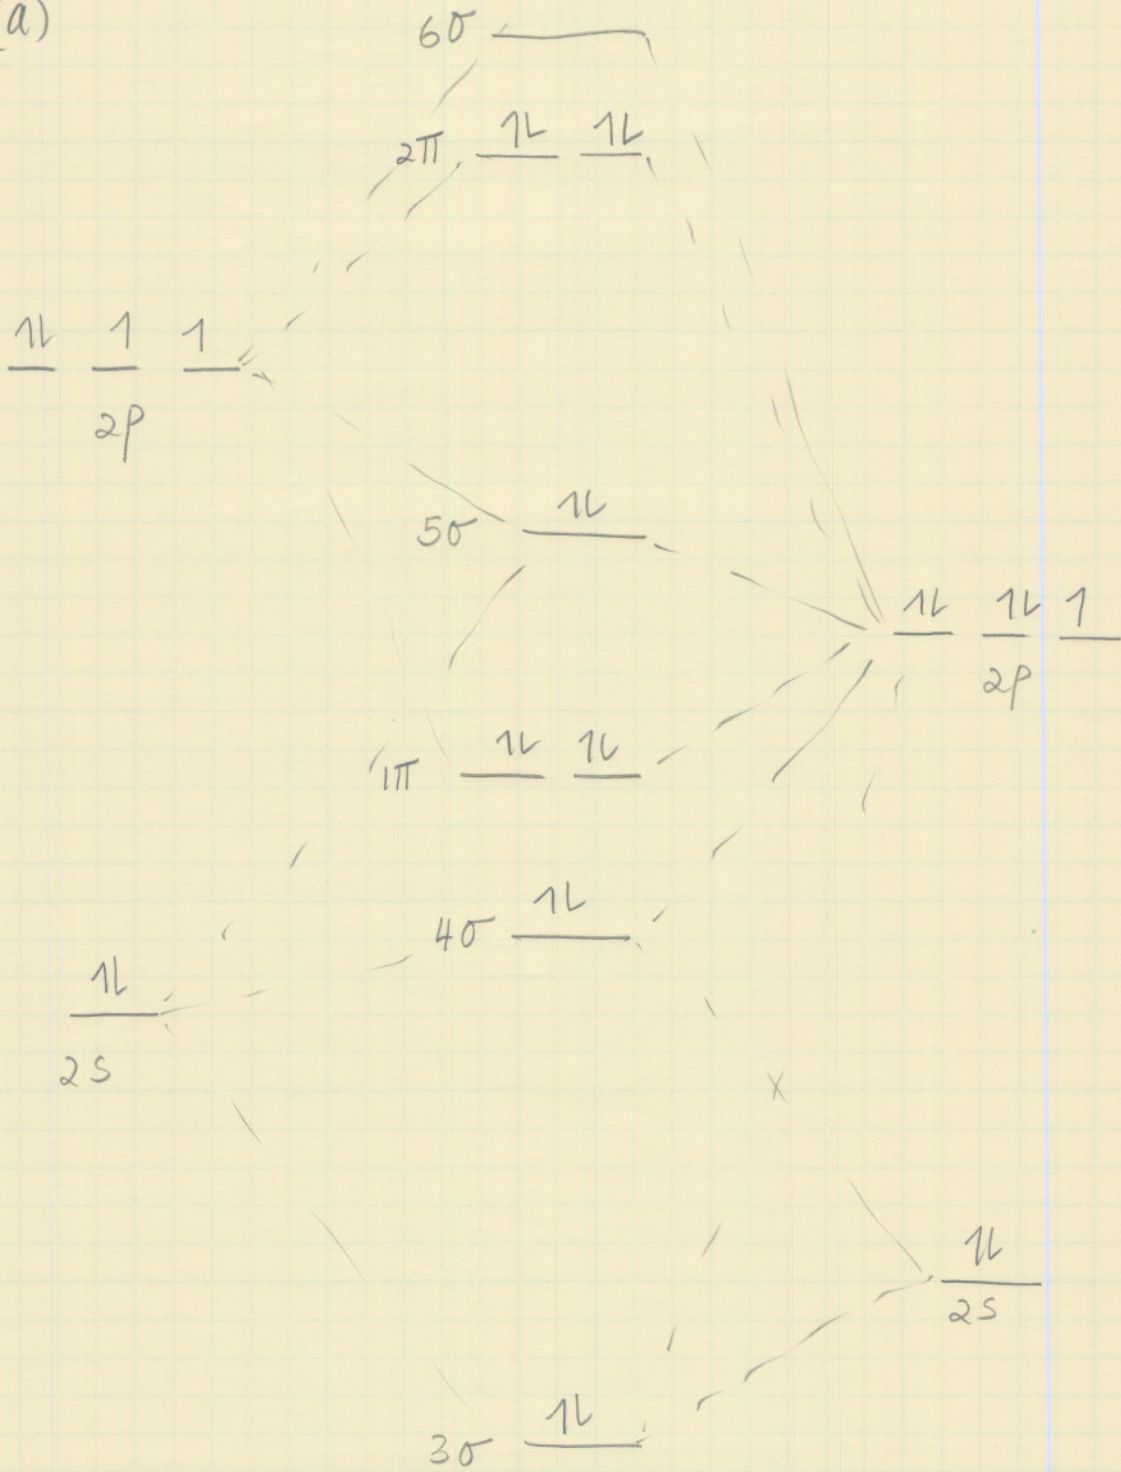 a)
6σ
2π 1L 1L
1L 1 1
2p
5σ 1L
1L 1L 1
2p
1π 1L 1L
4σ 1L
1L
2s
1L
2s
3σ 1L